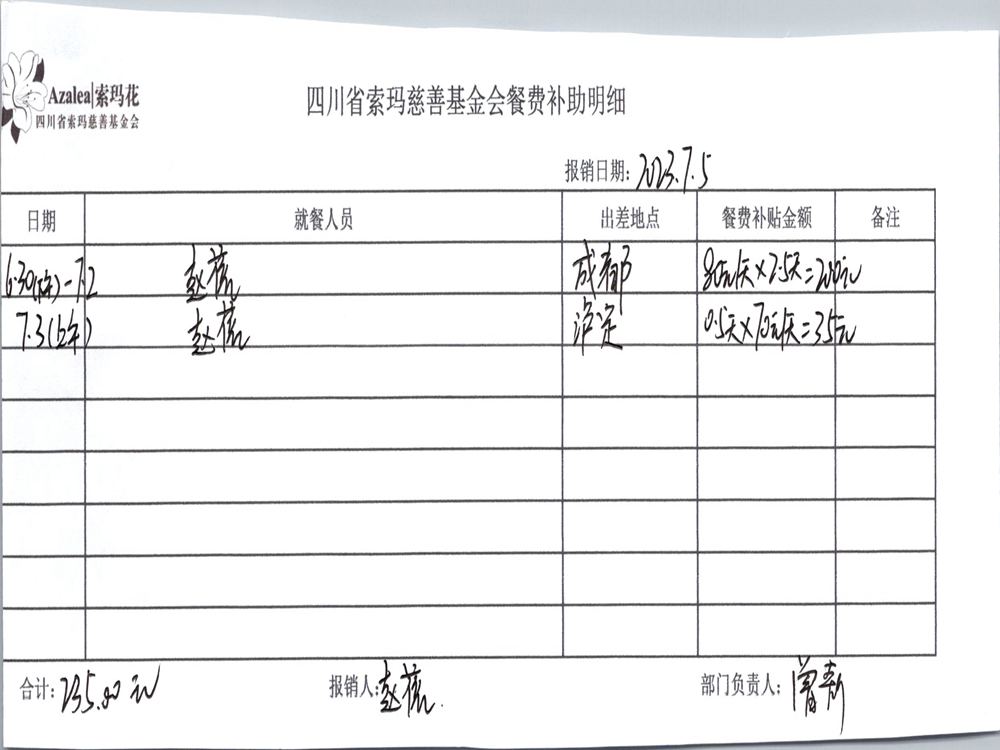 Azalea|索玛花
四川省索玛慈善基金会
四川省索玛慈善基金会餐费补助明细
报销日期: 2023.7.5
日期 就餐人员 出差地点 餐费补贴金额 备注
6.30(下午)-7.2 赵 成都 80元/天×2.5天=200元
7.3(上午) 赵 泸定 0.5天×70元/天=35元
合计: 235.00元 报销人: 赵 部门负责人: 曾